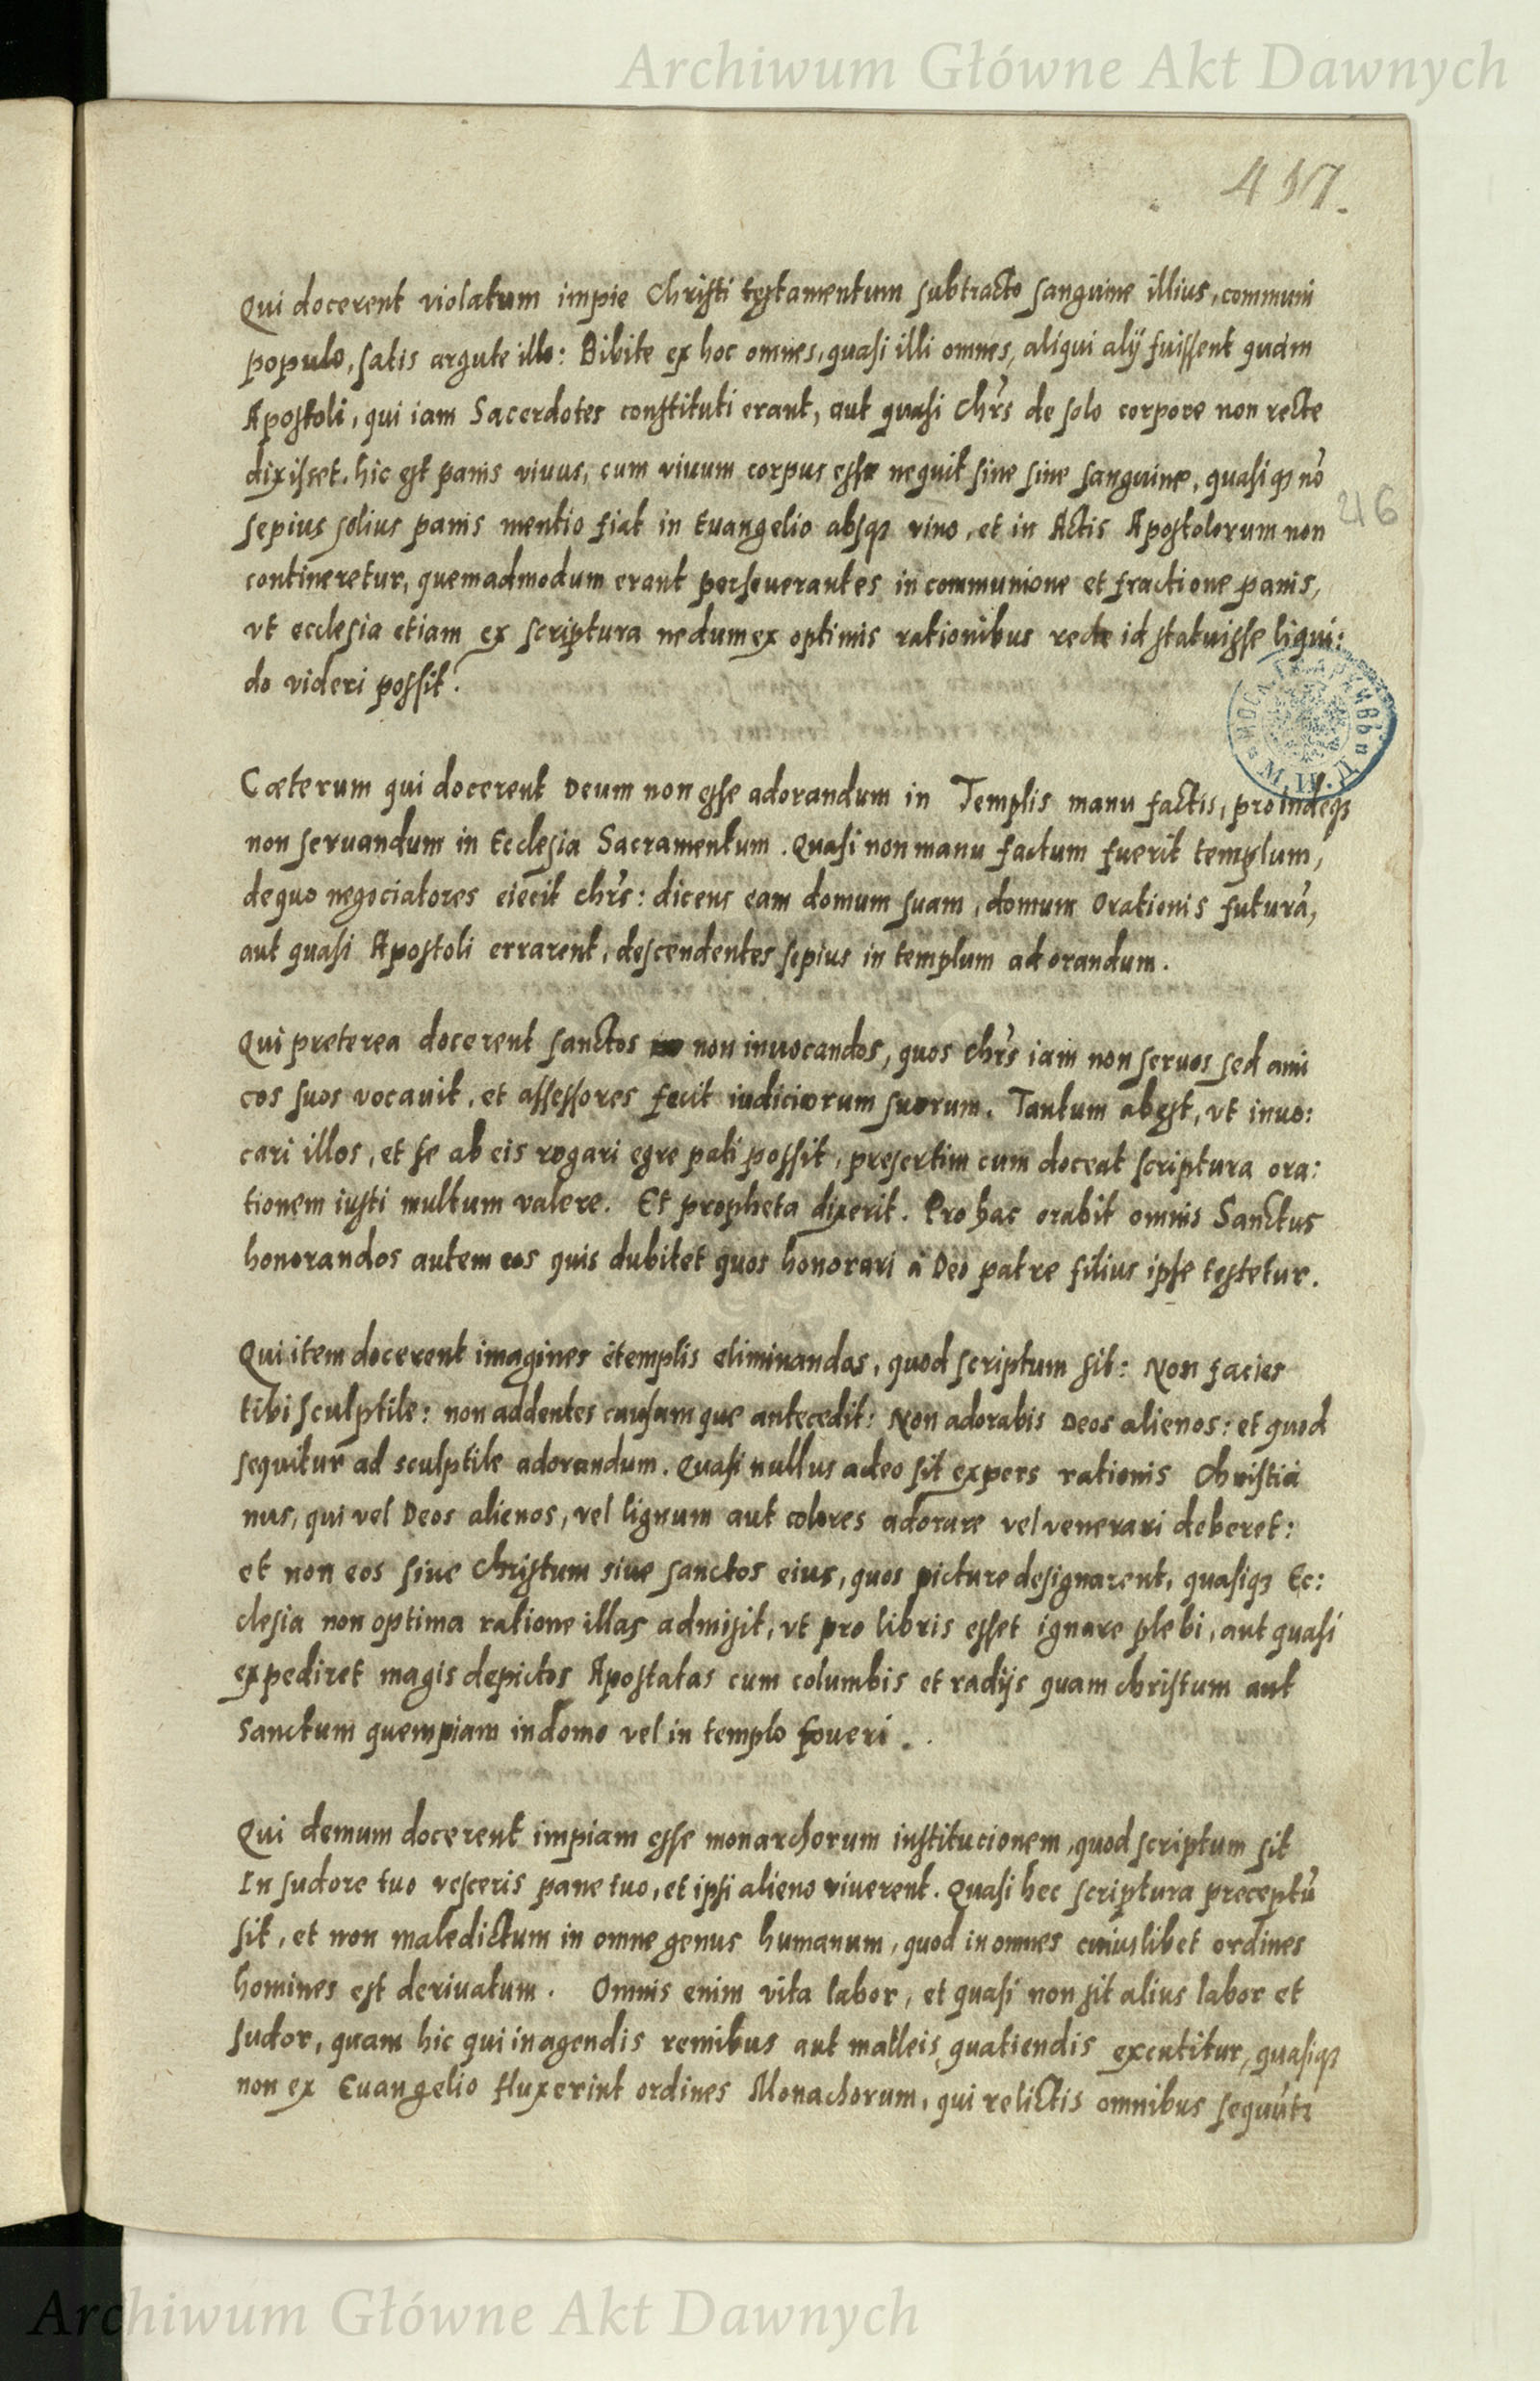 Archiwum Główne Akt Dawnych
417.
Qui docerent violatum impie Christi testamentum subtracto sanguine illius, communi
populo, satis argute illo: Bibite ex hoc omnes, quasi illi omnes, aliqui alij fuissent quàm
Apostoli, qui iam Sacerdotes constituti erant, aut quasi Chrs de solo corpore non recte
dixisset. hic est panis viuus, cum viuum corpus esse nequit sine sine sanguine, quasiqȝ nō
sepius solius panis mentio fiat in Euangelio absqȝ vino, et in Actis Apostolorum non
216
contineretur, quemadmodum erant perseuerantes in communione et fractione panis,
vt ecclesia etiam ex scriptura nedum ex optimis rationibus recte id statuisse liqui:
do videri possit.
Cæterum qui docerent Deum non esse adorandum in Templis manu factis, proindeqȝ
non seruandum in Ecclesia Sacramentum. Quasi non manu factum fuerit templum,
de quo negociatores eiecit chrs: dicens eam domum suam, domum Orationis futurā,
aut quasi Apostoli errarent, descendentes sepius in templum ad orandum.
Qui preterea docerent sanctos non inuocandos, quos chrs iam non seruos sed ami
cos suos vocauit, et assessores fecit iudiciorum suorum. Tantum abest, vt inuo:
cari illos, et se ab eis rogari egre pati possit, presertim cum doceat scriptura ora:
tionem iusti multum valere. Et propheta dixerit. Pro hac orabit omnis Sanctus
honorandos autem eos quis dubitet quos honorari à Deo patre filius ipse testetur.
Qui item docerent imagines è templis eliminandas, quod scriptum sit: Non facies
tibi sculptile: non addentes causam que antecedit: Non adorabis Deos alienos: et quod
sequitur ad sculptile adorandum. Quasi nullus adeo sit expers rationis Christia
nus, qui vel Deos alienos, vel lignum aut colores adorare vel venerari deberet:
et non eos siue Christum siue sanctos eius, quos picture designarent, quasiqȝ Ec:
clesia non optima ratione illas admisit, vt pro libris esset ignare plebi, aut quasi
expediret magis depictos Apostatas cum columbis et radijs quam christum aut
Sanctum quempiam in domo vel in templo foueri.
Qui demum docerent impiam esse monarchorum institucionem, quod scriptum sit
In sudore tuo vesceris pane tuo, et ipsi alieno viuerent. Quasi hec scriptura preceptū
sit, et non maledictum in omne genus humanum, quod in omnes cuiuslibet ordines
homines est deriuatum. Omnis enim vita labor, et quasi non sit alius labor et
sudor, quam hic qui in agendis remibus aut malleis quatiendis excutitur, quasiqȝ
non ex Euangelio fluxerint ordines Monachorum, qui relictis omnibus sequūtr
Archiwum Główne Akt Dawnych